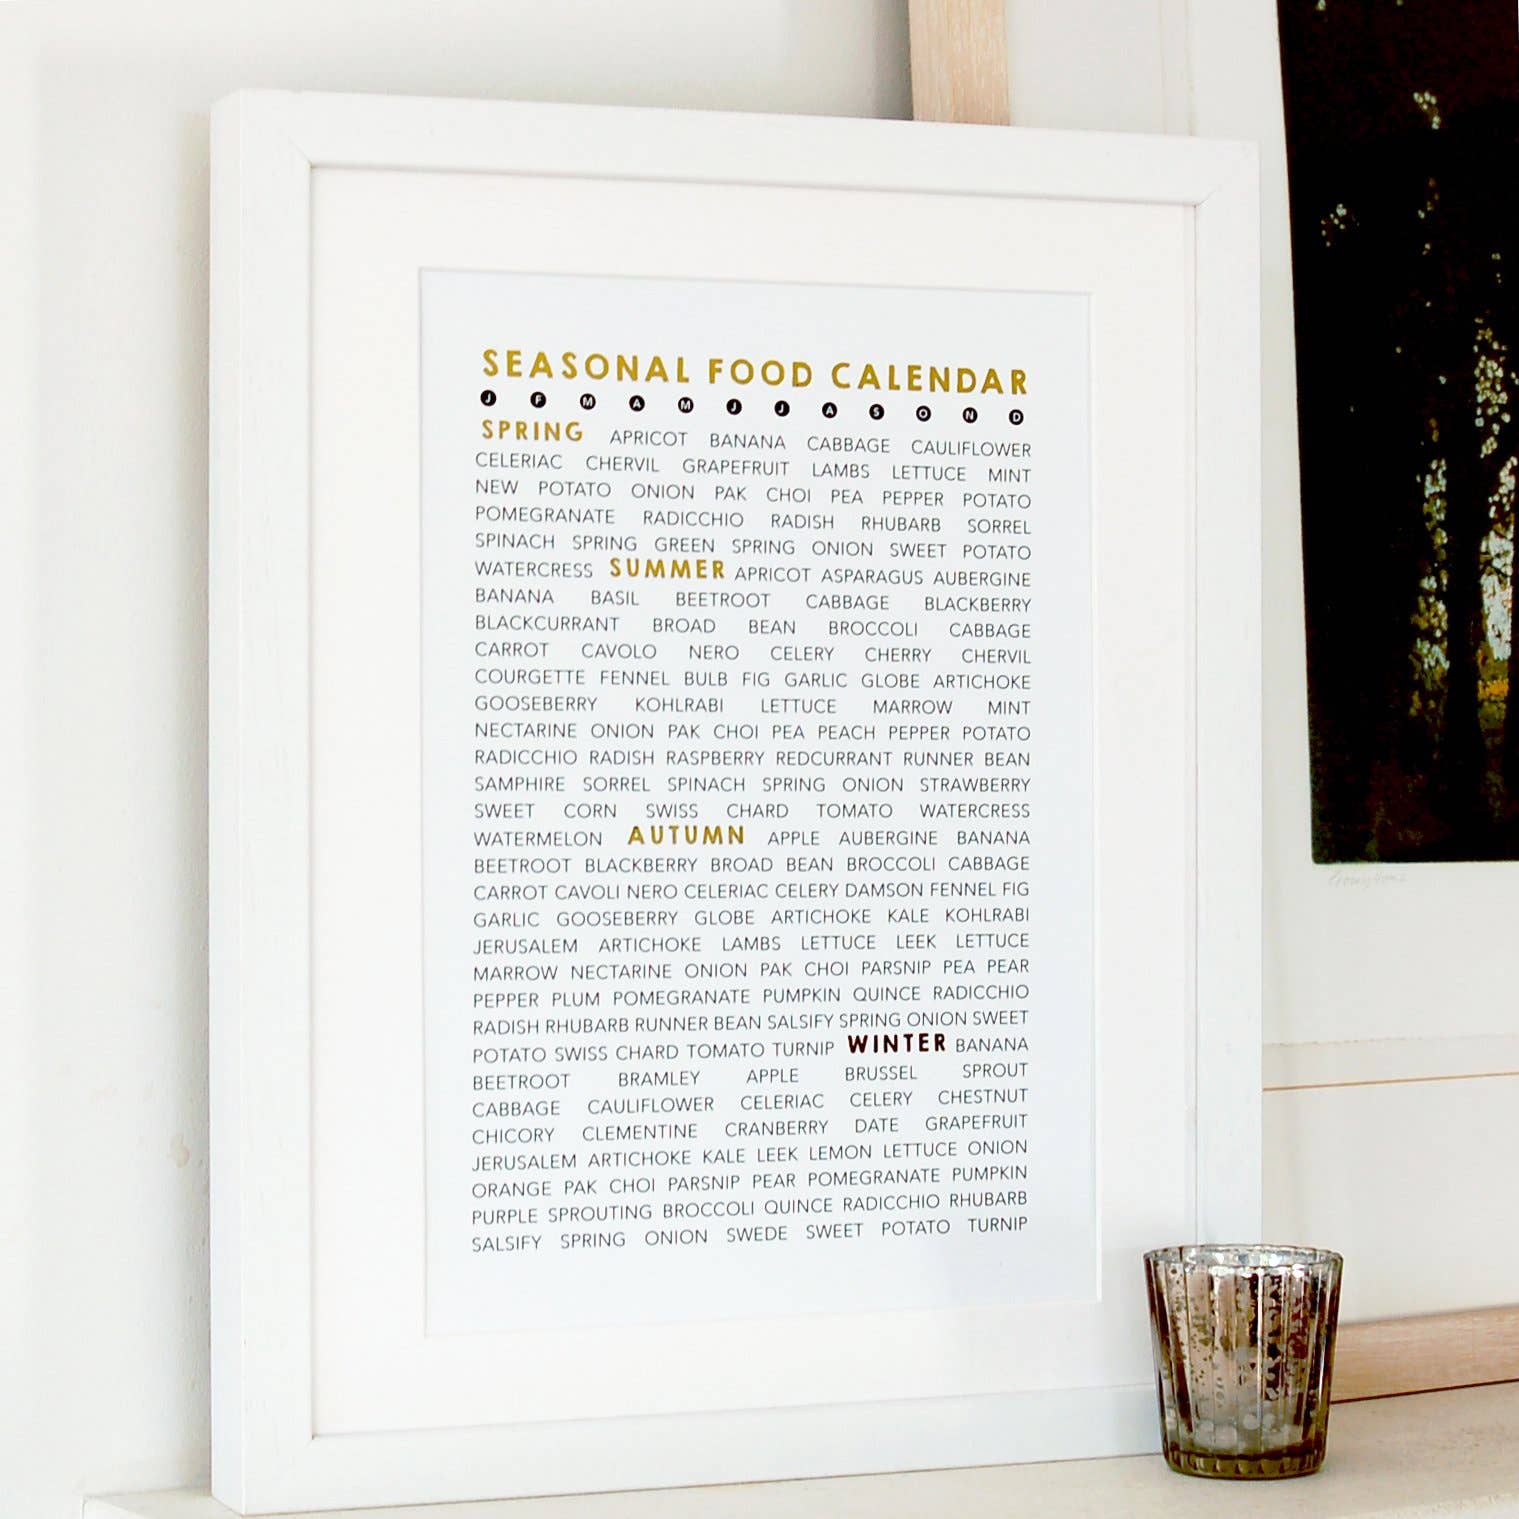 SEASONAL FOOD CALENDAR
J F M A M J J A S O N D
SPRING APRICOT BANANA CABBAGE CAULIFLOWER
CELERIAC CHERVIL GRAPEFRUIT LAMBS LETTUCE MINT
NEW POTATO ONION PAK CHOI PEA PEPPER POTATO
POMEGRANATE RADICCHIO RADISH RHUBARB SORREL
SPINACH SPRING GREEN SPRING ONION SWEET POTATO
WATERCRESS SUMMER APRICOT ASPARAGUS AUBERGINE
BANANA BASIL BEETROOT CABBAGE BLACKBERRY
BLACKCURRANT BROAD BEAN BROCCOLI CABBAGE
CARROT CAVOLO NERO CELERY CHERRY CHERVIL
COURGETTE FENNEL BULB FIG GARLIC GLOBE ARTICHOKE
GOOSEBERRY KOHLRABI LETTUCE MARROW MINT
NECTARINE ONION PAK CHOI PEA PEACH PEPPER POTATO
RADICCHIO RADISH RASPBERRY REDCURRANT RUNNER BEAN
SAMPHIRE SORREL SPINACH SPRING ONION STRAWBERRY
SWEET CORN SWISS CHARD TOMATO WATERCRESS
WATERMELON AUTUMN APPLE AUBERGINE BANANA
BEETROOT BLACKBERRY BROAD BEAN BROCCOLI CABBAGE
CARROT CAVOLI NERO CELERIAC CELERY DAMSON FENNEL FIG
GARLIC GOOSEBERRY GLOBE ARTICHOKE KALE KOHLRABI
JERUSALEM ARTICHOKE LAMBS LETTUCE LEEK LETTUCE
MARROW NECTARINE ONION PAK CHOI PARSNIP PEA PEAR
PEPPER PLUM POMEGRANATE PUMPKIN QUINCE RADICCHIO
RADISH RHUBARB RUNNER BEAN SALSIFY SPRING ONION SWEET
POTATO SWISS CHARD TOMATO TURNIP WINTER BANANA
BEETROOT BRAMLEY APPLE BRUSSEL SPROUT
CABBAGE CAULIFLOWER CELERIAC CELERY CHESTNUT
CHICORY CLEMENTINE CRANBERRY DATE GRAPEFRUIT
JERUSALEM ARTICHOKE KALE LEEK LEMON LETTUCE ONION
ORANGE PAK CHOI PARSNIP PEAR POMEGRANATE PUMPKIN
PURPLE SPROUTING BROCCOLI QUINCE RADICCHIO RHUBARB
SALSIFY SPRING ONION SWEDE SWEET POTATO TURNIP